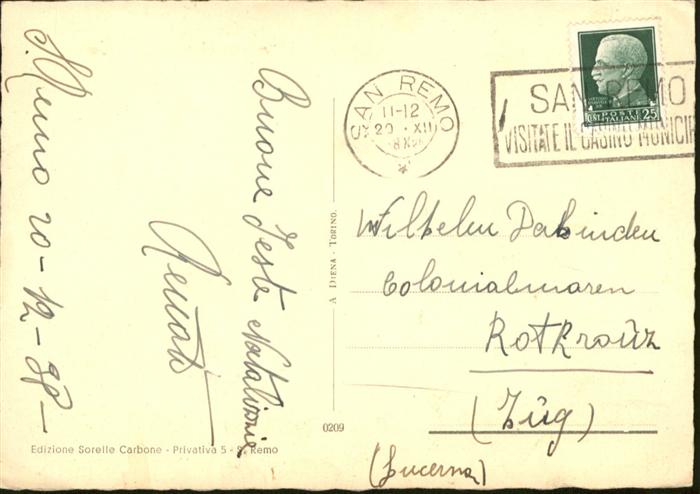 S. Remo 20-12-38-
Buone Feste Natalizie
Renato
SAN REMO
11-12
20 . XII
SAN REMO
VISITATE IL CASINO MUNICI
POSTE
ITALIANE
CENT. 25
Wilhelm Dabinden
Colonialwaren
Rotkreuz
(Zug)
(Lucerna)
A DIENA - TORINO.
0209
Edizione Sorelle Carbone - Privativa 5 - S. Remo